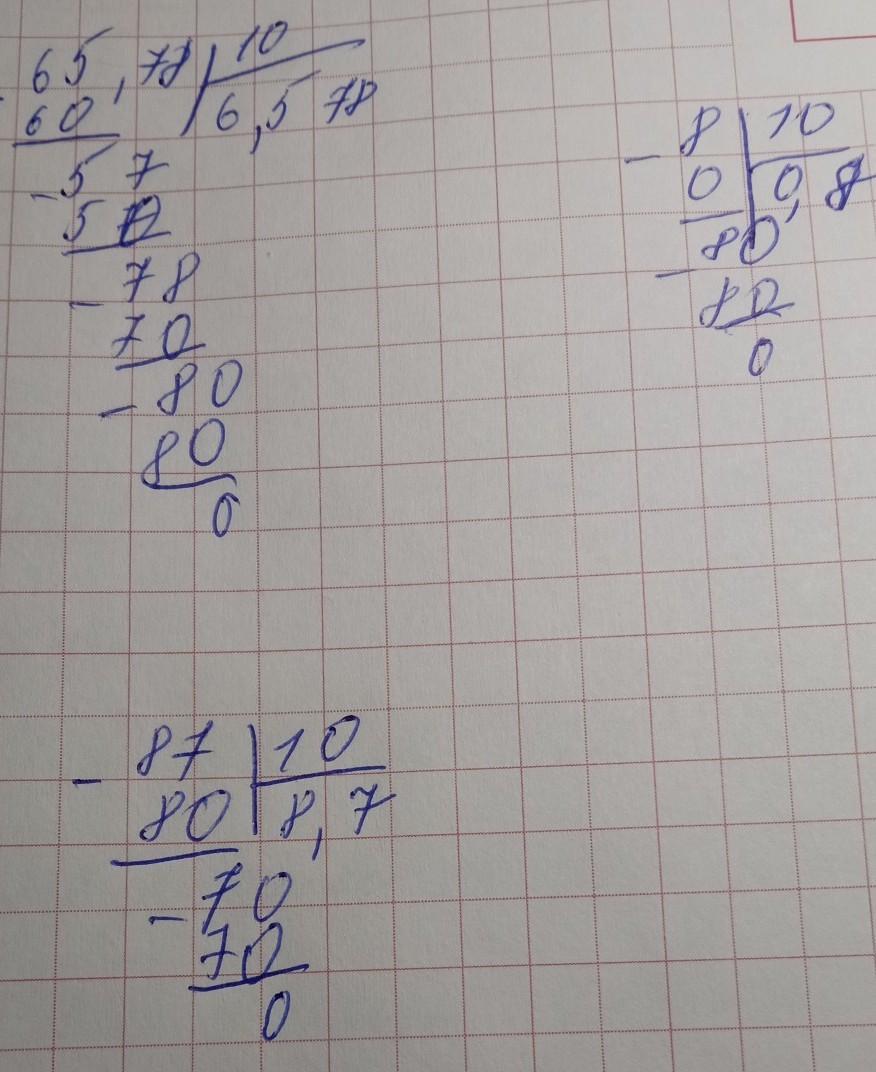 - 65,78 | 10
60 | 6,578
- 57
50
- 78
70
- 80
80
0
- 8 | 10
0 | 0,8
- 80
80
0
- 87 | 10
80 | 8,7
- 70
70
0